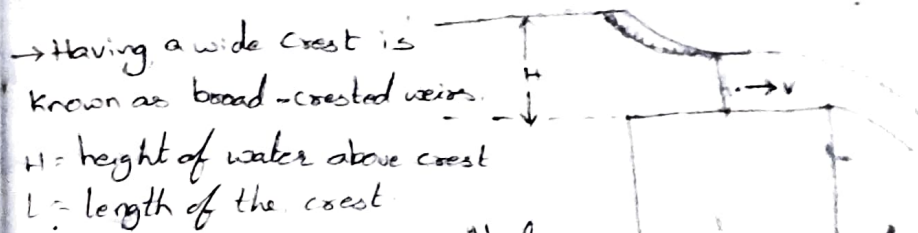 → Having a wide crest is
known as broad-crested weirs.
H = height of water above crest
L = length of the crest
H
h
→ v